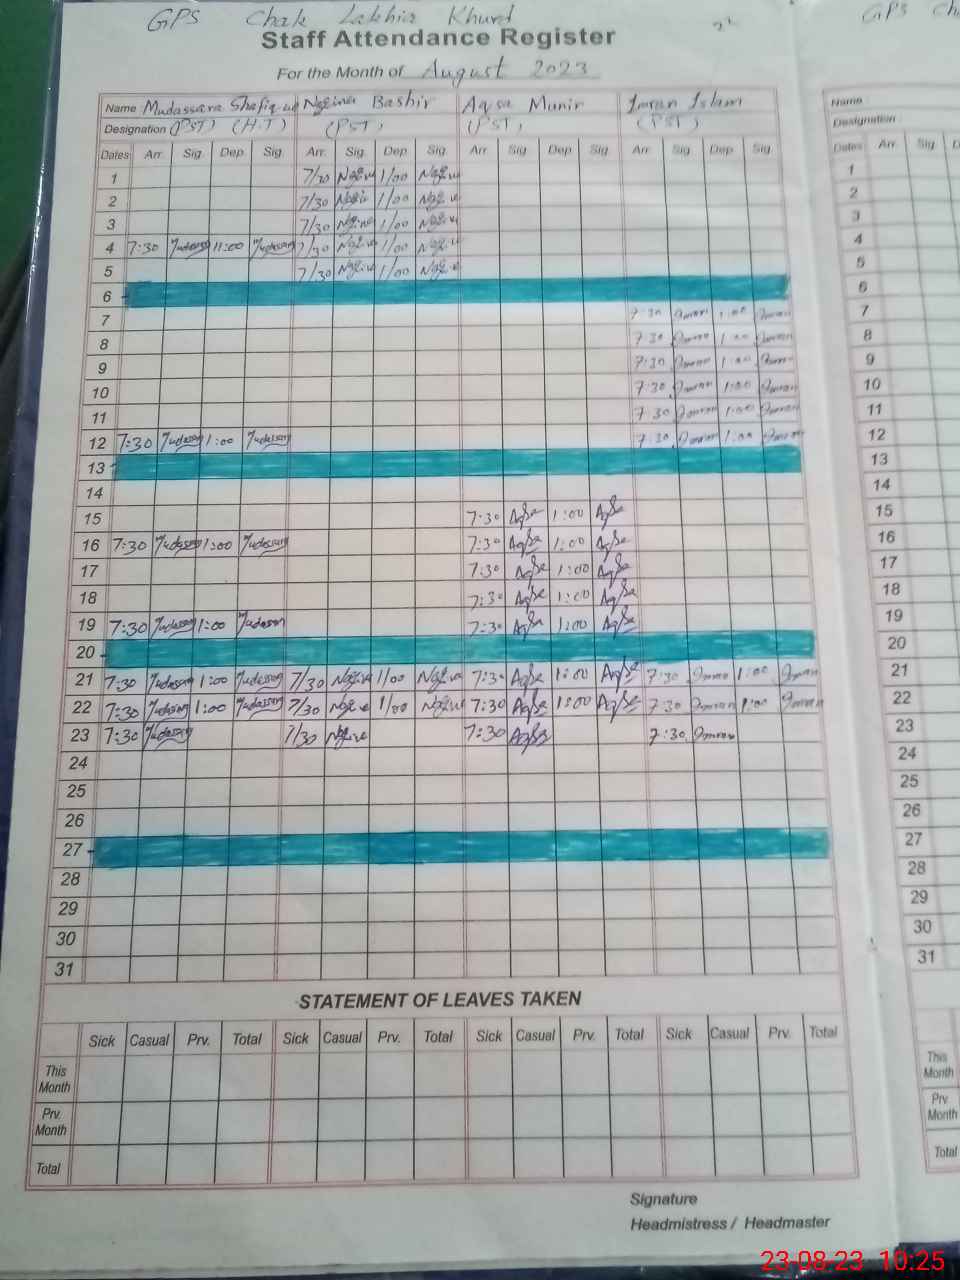 GPS Chak Lakhia Khurd
Staff Attendance Register
For the Month of August 2023
Name Mudassara Shafiq Nagina Bashir Aqsa Munir Imran Islam
Designation (PST) (H.T) (PST) (PST) (PST)
Dates Arr. Sig. Dep. Sig. Arr. Sig. Dep. Sig. Arr. Sig. Dep. Sig. Arr. Sig. Dep. Sig.
1 7/30 1/00
2 7/30 1/00
3 7/30 1/00
4 7:30 11:00 7/30 1/00
5 7/30 1/00
6
7 7:30 Imran 1:00 Imran
8 7:30 Imran 1:00 Imran
9 7:30 Imran 1:00 Imran
10 7:30 Imran 1:00 Imran
11 7:30 Imran 1:00 Imran
12 7:30 1:00 7:30 Imran 1:00 Imran
13
14
15 7:30 Aqsa 1:00 Aqsa
16 7:30 1:00 7:30 Aqsa 1:00 Aqsa
17 7:30 Aqsa 1:00 Aqsa
18 7:30 Aqsa 1:00 Aqsa
19 7:30 1:00 7:30 Aqsa 1:00 Aqsa
20
21 7:30 1:00 7/30 1/00 7:30 Aqsa 1:00 Aqsa 7:30 Imran 1:00 Imran
22 7:30 1:00 7/30 1/00 7:30 Aqsa 1:00 Aqsa 7:30 Imran 1:00 Imran
23 7:30 7/30 7:30 Aqsa 7:30 Imran
24
25
26
27
28
29
30
31
STATEMENT OF LEAVES TAKEN
Sick Casual Prv. Total Sick Casual Prv. Total Sick Casual Prv. Total Sick Casual Prv. Total
This Month
Prv. Month
Total
Signature
Headmistress / Headmaster
GPS Ch
Name
Designation
Dates Arr. Sig D
1
2
3
4
5
6
7
8
9
10
11
12
13
14
15
16
17
18
19
20
21
22
23
24
25
26
27
28
29
30
31
This Month
Prv. Month
Total
23-08-23 10:25